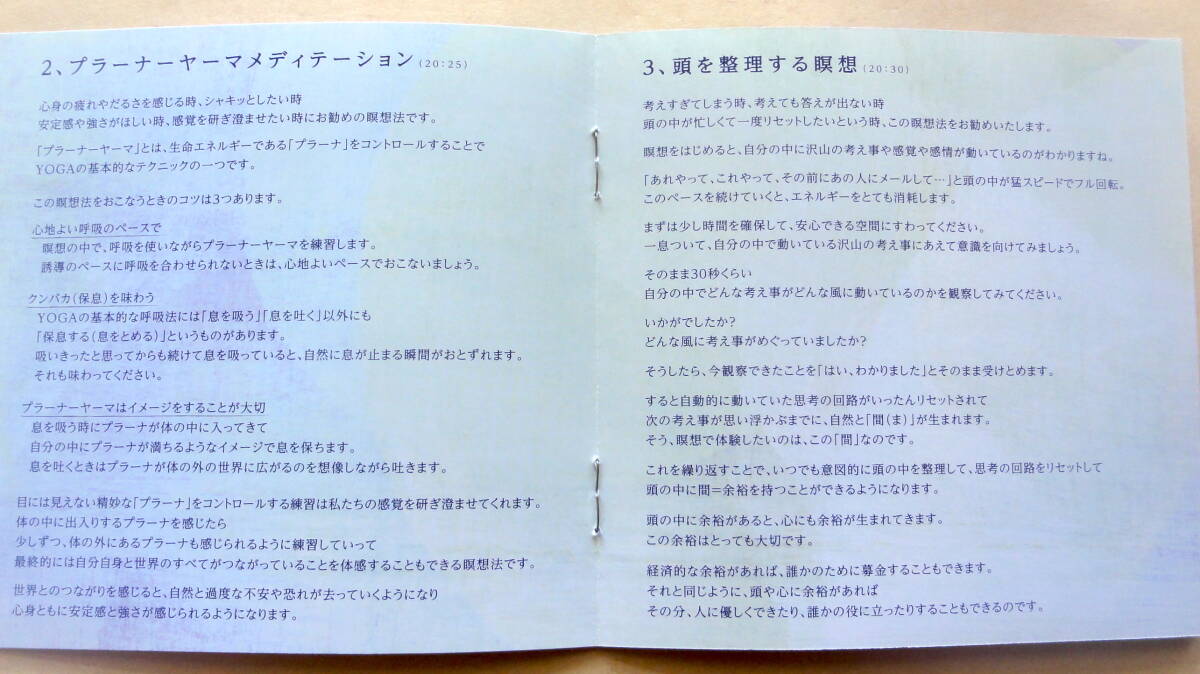 2、プラーナーヤーマメディテーション(20:25)
心身の疲れやだるさを感じる時、シャキッとしたい時
安定感や強さがほしい時、感覚を研ぎ澄ませたい時にお勧めの瞑想法です。
「プラーナーヤーマ」とは、生命エネルギーである「プラーナ」をコントロールすることで
YOGAの基本的なテクニックの一つです。
この瞑想法をおこなうときのコツは3つあります。
心地よい呼吸のペースで
瞑想の中で、呼吸を使いながらプラーナーヤーマを練習します。
誘導のペースに呼吸を合わせられないときは、心地よいペースでおこないましょう。
クンバカ(保息)を味わう
YOGAの基本的な呼吸法には「息を吸う」「息を吐く」以外にも
「保息する(息をとめる)」というものがあります。
吸いきったと思ってからも続けて息を吸っていると、自然に息が止まる瞬間がおとずれます。
それも味わってください。
プラーナーヤーマはイメージをすることが大切
息を吸う時にプラーナが体の中に入ってきて
自分の中にプラーナが満ちるようなイメージで息を保ちます。
息を吐くときはプラーナが体の外の世界に広がるのを想像しながら吐きます。
目には見えない精妙な「プラーナ」をコントロールする練習は私たちの感覚を研ぎ澄ませてくれます。
体の中に出入りするプラーナを感じたら
少しずつ、体の外にあるプラーナも感じられるように練習していって
最終的には自分自身と世界のすべてがつながっていることを体感することもできる瞑想法です。
世界とのつながりを感じると、自然と過度な不安や恐れが去っていくようになり
心身ともに安定感と強さが感じられるようになります。
3、頭を整理する瞑想(20:30)
考えすぎてしまう時、考えても答えが出ない時
頭の中が忙しくて一度リセットしたいという時、この瞑想法をお勧めいたします。
瞑想をはじめると、自分の中に沢山の考え事や感覚や感情が動いているのがわかりますね。
「あれやって、これやって、その前にあの人にメールして…」と頭の中が猛スピードでフル回転。
このペースを続けていくと、エネルギーをとても消耗します。
まずは少し時間を確保して、安心できる空間にすわってください。
一息ついて、自分の中で動いている沢山の考え事にあえて意識を向けてみましょう。
そのまま30秒くらい
自分の中でどんな考え事がどんな風に動いているのかを観察してみてください。
いかがでしたか?
どんな風に考え事がめぐっていましたか?
そうしたら、今観察できたことを「はい、わかりました」とそのまま受けとめます。
すると自動的に動いていた思考の回路がいったんリセットされて
次の考え事が思い浮かぶまでに、自然と「間(ま)」が生まれます。
そう、瞑想で体験したいのは、この「間」なのです。
これを繰り返すことで、いつでも意図的に頭の中を整理して、思考の回路をリセットして
頭の中に間=余裕を持つことができるようになります。
頭の中に余裕があると、心にも余裕が生まれてきます。
この余裕はとっても大切です。
経済的な余裕があれば、誰かのために募金することもできます。
それと同じように、頭や心に余裕があれば
その分、人に優しくできたり、誰かの役に立ったりすることもできるのです。